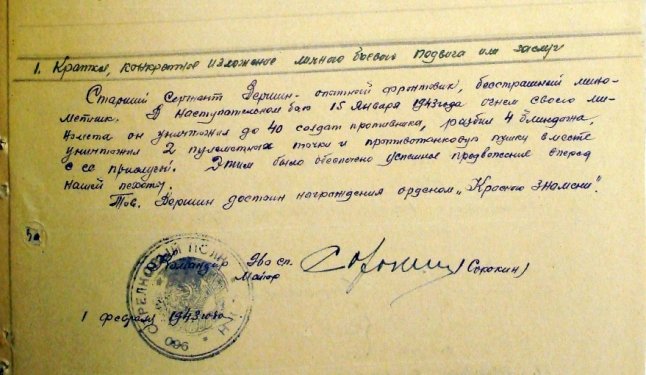 1. Краткое, конкретное изложение личного боевого подвига или заслуг
Старший Сержант Вершин - опытный фронтовик, бесстрашный мино-
метчик. В наступательном бою 15 января 1943 года огнем своего ми-
номета он уничтожил до 40 солдат противника, разбил 4 блиндажа,
уничтожил 2 пулеметных точки и противотанковую пушку вместе
с ее прислугой. Этим было обеспечено успешное продвижение вперед
нашей пехоты.
Тов. Вершин достоин награждения орденом „Красное Знамя".
Командир
Майор
(Сорокин)
1 февраля 1943 года
СТРЕЛКОВЫЙ ПОЛК